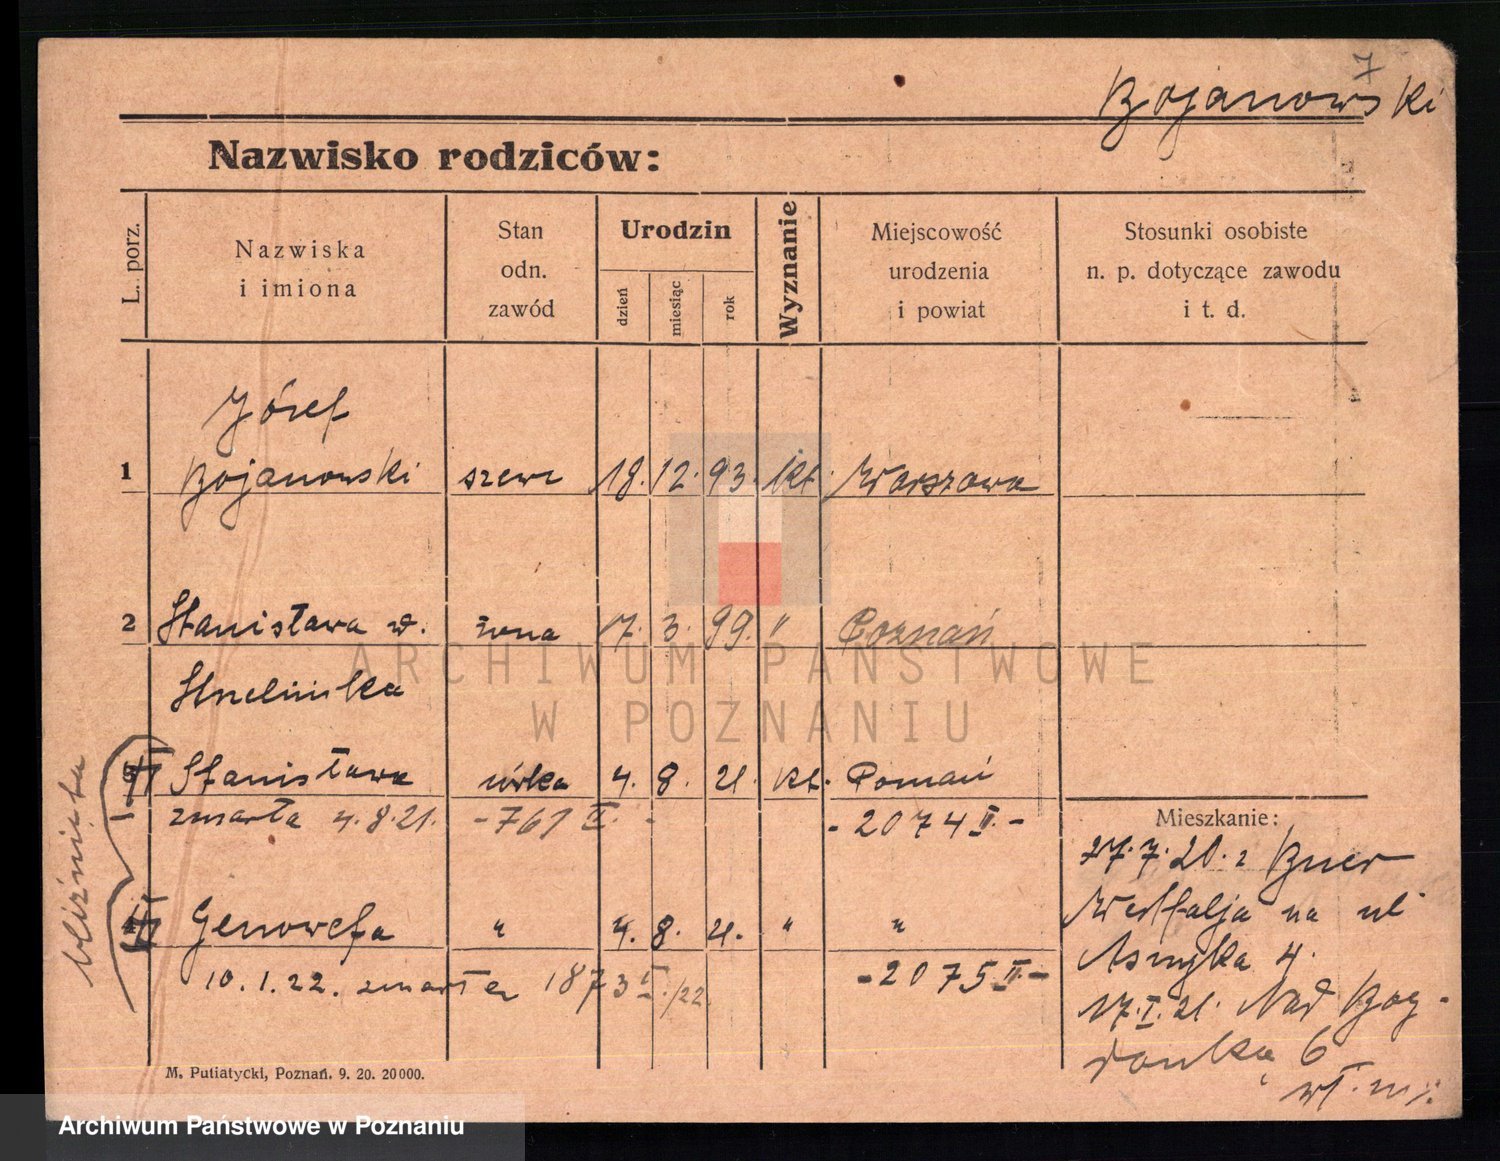 7
Bojanowski
Nazwisko rodziców:
L. porz.
Nazwiska
i imiona
Stan
odn.
zawód
Urodzin
dzień
miesiąc
rok
Wyznanie
Miejscowość
urodzenia
i powiat
Stosunki osobiste
n. p. dotyczące zawodu
i t. d.
Józef
1 Bojanowski szewc 18. 12. 93. kt. Warszawa
2 Stanisława z d. żona 17. 3. 99. " Poznań
ARCHIWUM PAŃSTWOWE
W POZNANIU
Stanisława córka 4. 8. 21. kt. Poznań
zmarła 4.8.21. -761 II. - -2074 II.-
bliźnięta
Genowefa " 4. 8. 21. " "
10.1.22. zmarła 1873 /22 -2075 II.-
Mieszkanie:
27.7.20. z Buer
Westfalja na ul
Asnyka 4.
17.I.21. Nad Bog-
danką 6
M. Putiatycki, Poznań. 9. 20. 20000.
Archiwum Państwowe w Poznaniu